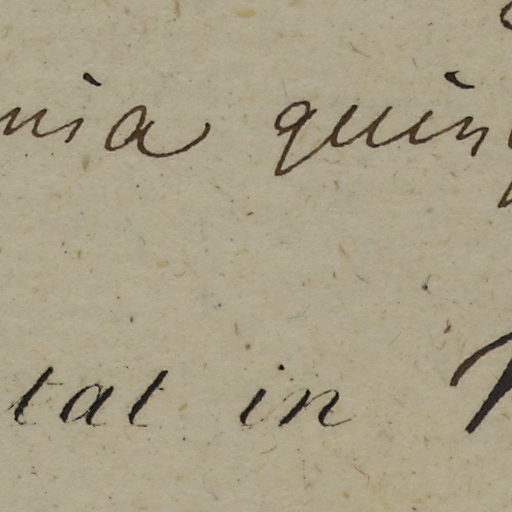 nia quin
tat in